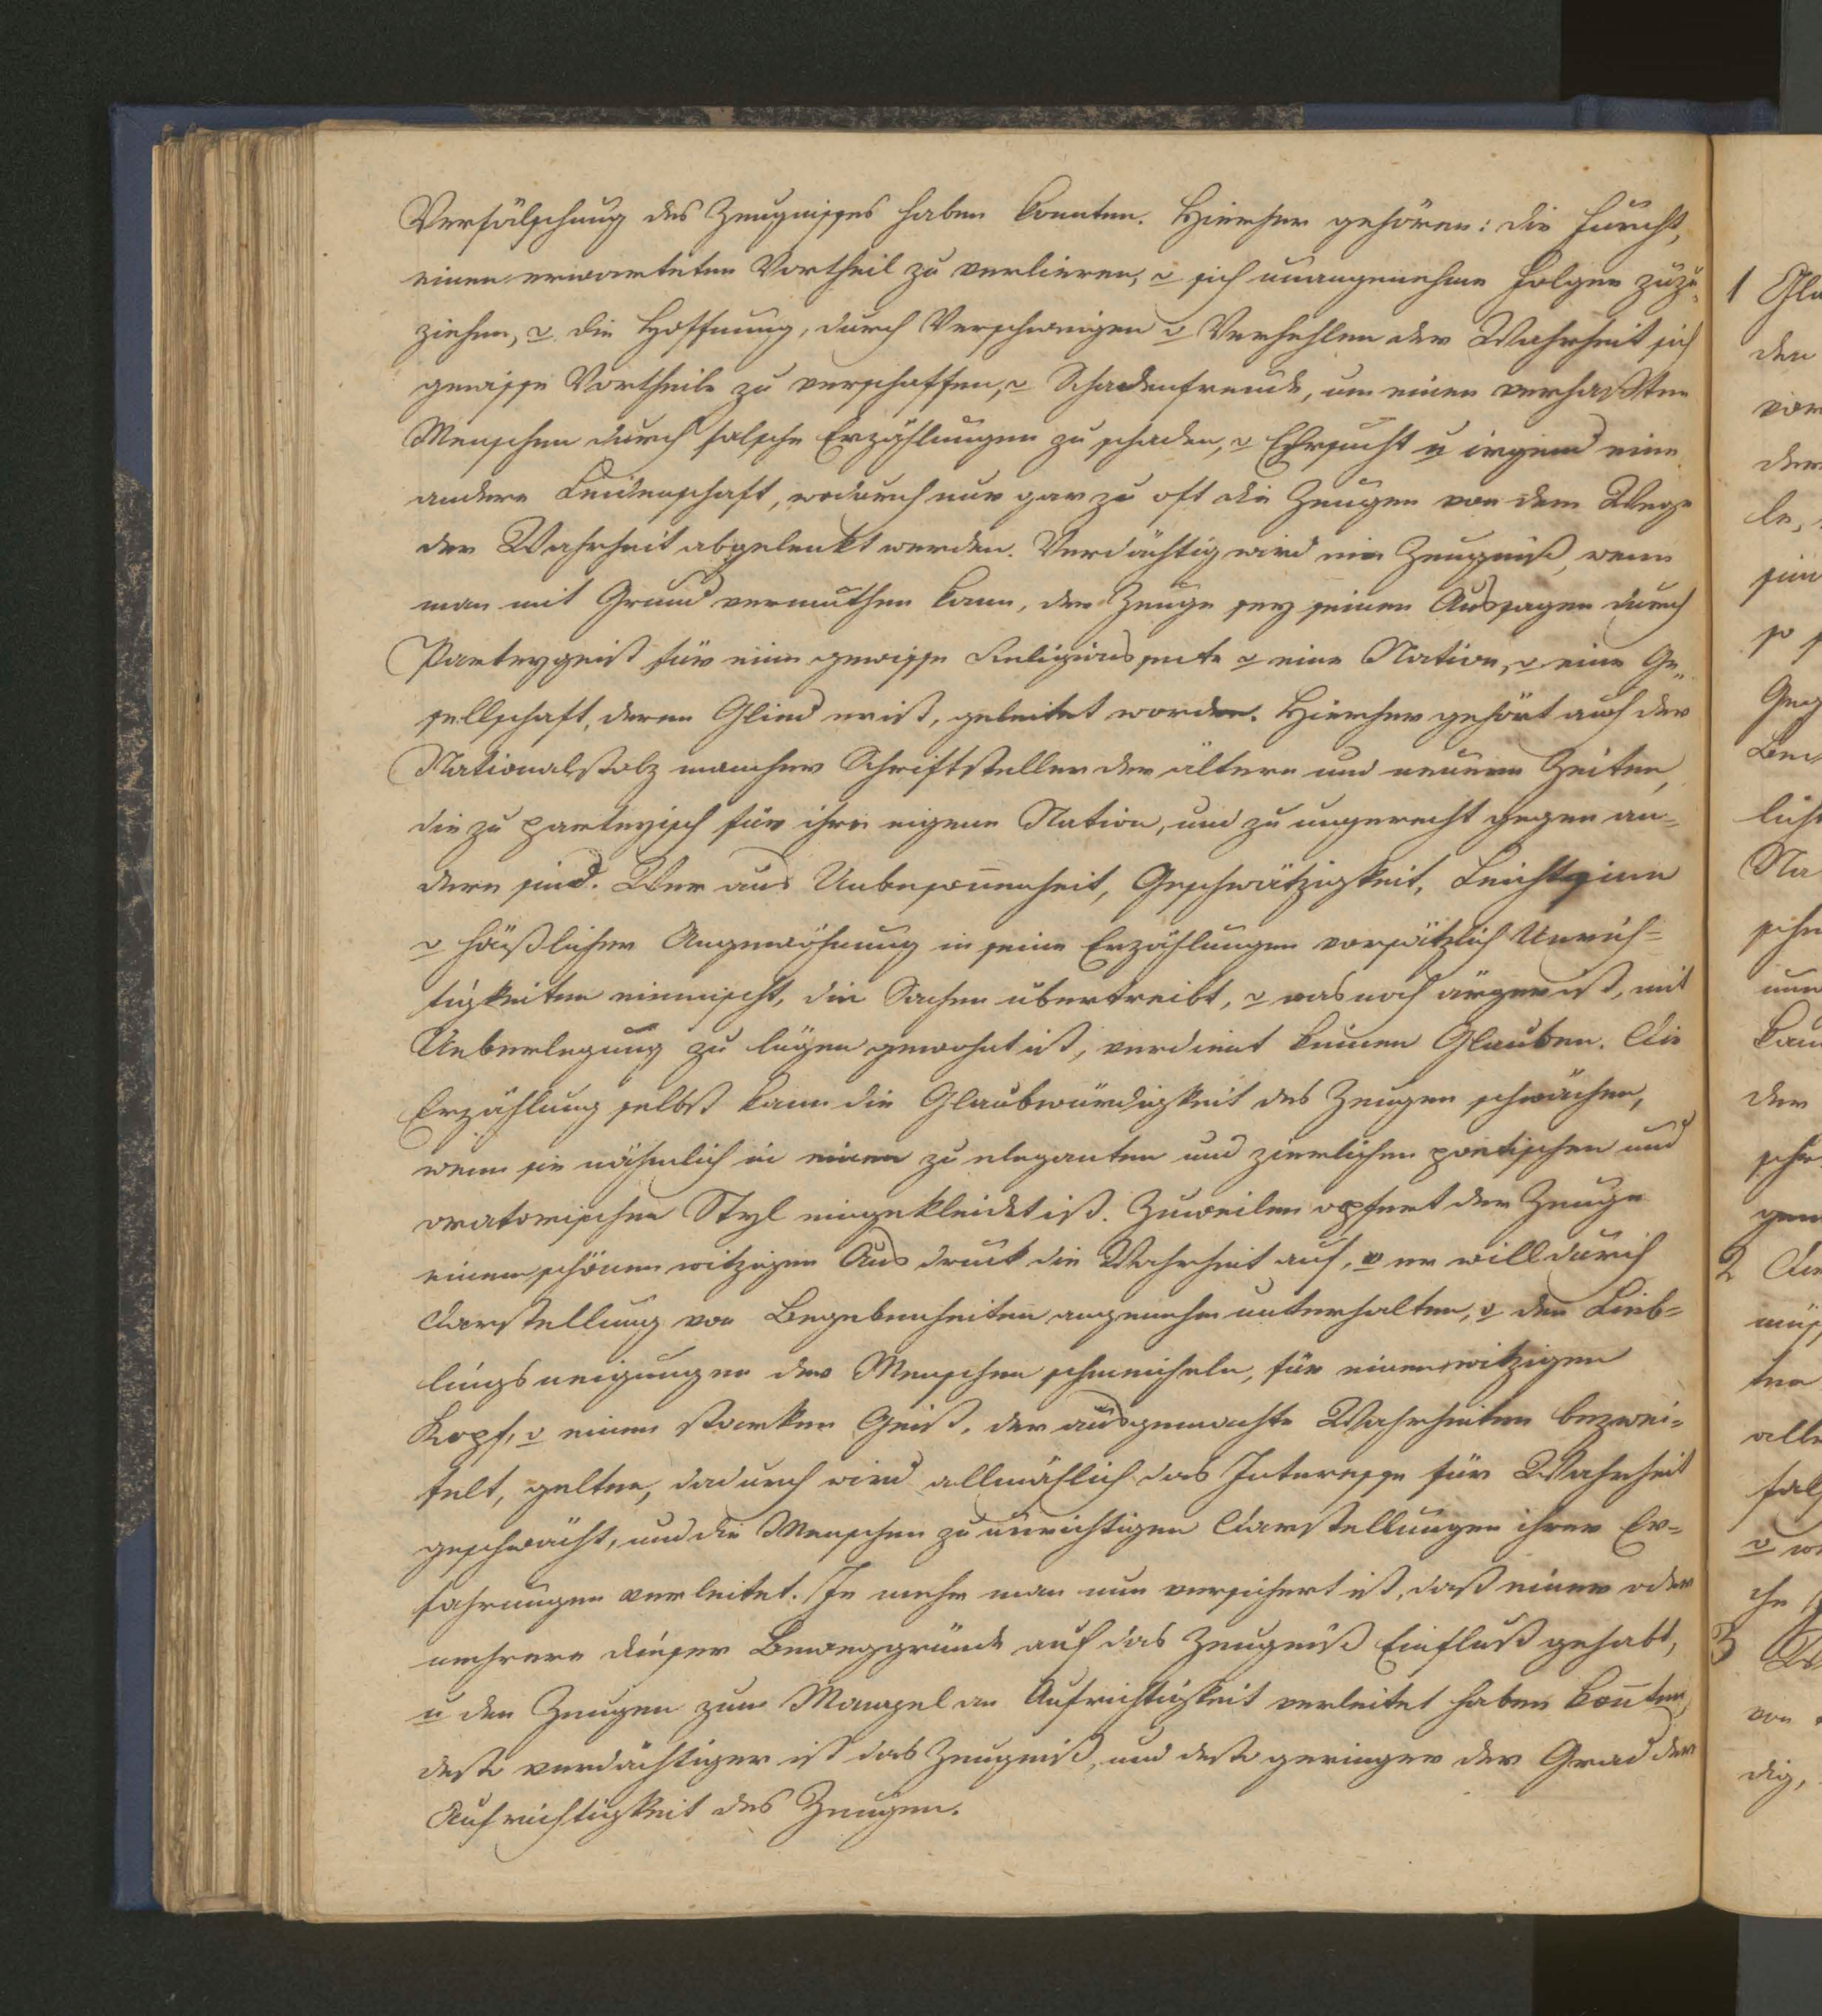 Verfälschung des Zeugnisses haben konnten. Hierher gehören: die Furcht,
einen erwarteten Vortheil zu verlieren, o sich unangenehme Folgen zuzu-
ziehen, o die Hoffnung, durch Verschweigen o Verhehlen der Wahrheit sich
gewisse Vortheile zu verschaffen, o Schadenfreude, um einen verhaßten
Menschen durch falsche Erzählungen zu schaden, o Ehrsucht u irgend eine
andere Leidenschaft, wodurch nur gar zu oft die Zeugen von dem Wege
der Wahrheit abgelenkt werden. Verdächtig wird ein Zeugniß, wenn
man mit Grund vermuthen kann, der Zeuge sey seinen Aussagen durch
Parteygeist für eine gewisse Religionssecte o eine Nation, o eine Ge-
sellschaft, deren Glied er ist, geleitet worden. Hierher gehört auch der
Nationalstolz mancher Schriftsteller der ältern und neuern Zeiten,
die zu parteyisch für ihre eigene Nation, und zu ungerecht gegen an-
dere sind. Wer aus Unbesoñenheit, Geschwätzigkeit, Leichtsinn
o häßlicher Angewöhnung in seine Erzählungen vorsätzlich Unrich-
tigkeiten einmischt, die Sachen übertreibt, o was noch ärger ist, mit
Ueberlegung zu lügen gewohnt ist, verdient keinen Glauben. Die
Erzählung selbst kann die Glaubwürdigkeit des Zeugen schwächen,
wenn sie nähmlich in einen zu eleganten und zierlichen poetischen und
oratorischen Styl eingekleidet ist. Zuweilen opfert der Zeuge
einem schönen witzigen Ausdruck die Wahrheit auf, o er will durch
Darstellung von Begebenheiten angenehm unterhalten, o den Lieb-
lingsneigungen der Menschen schmeicheln, für einen witzigen
Kopf, o einen starken Geist, der ausgemachte Wahrheiten bezwei-
felt, gelten, dadurch wird allmählich das Interesse für Wahrheit
geschwächt, und die Menschen zu unrichtigen Darstellungen ihrer Er-
fahrungen verleitet. Je mehr man nun versichert ist, daß einer oder
mehrere dieser Beweggründe auf das Zeugniß Einfluß gehabt,
u den Zeugen zum Mangel an Aufrichtigkeit verleitet haben koñten,
desto verdächtiger ist das Zeugniß, und desto geringer der Grad der
Aufrichtigkeit des Zeugen.